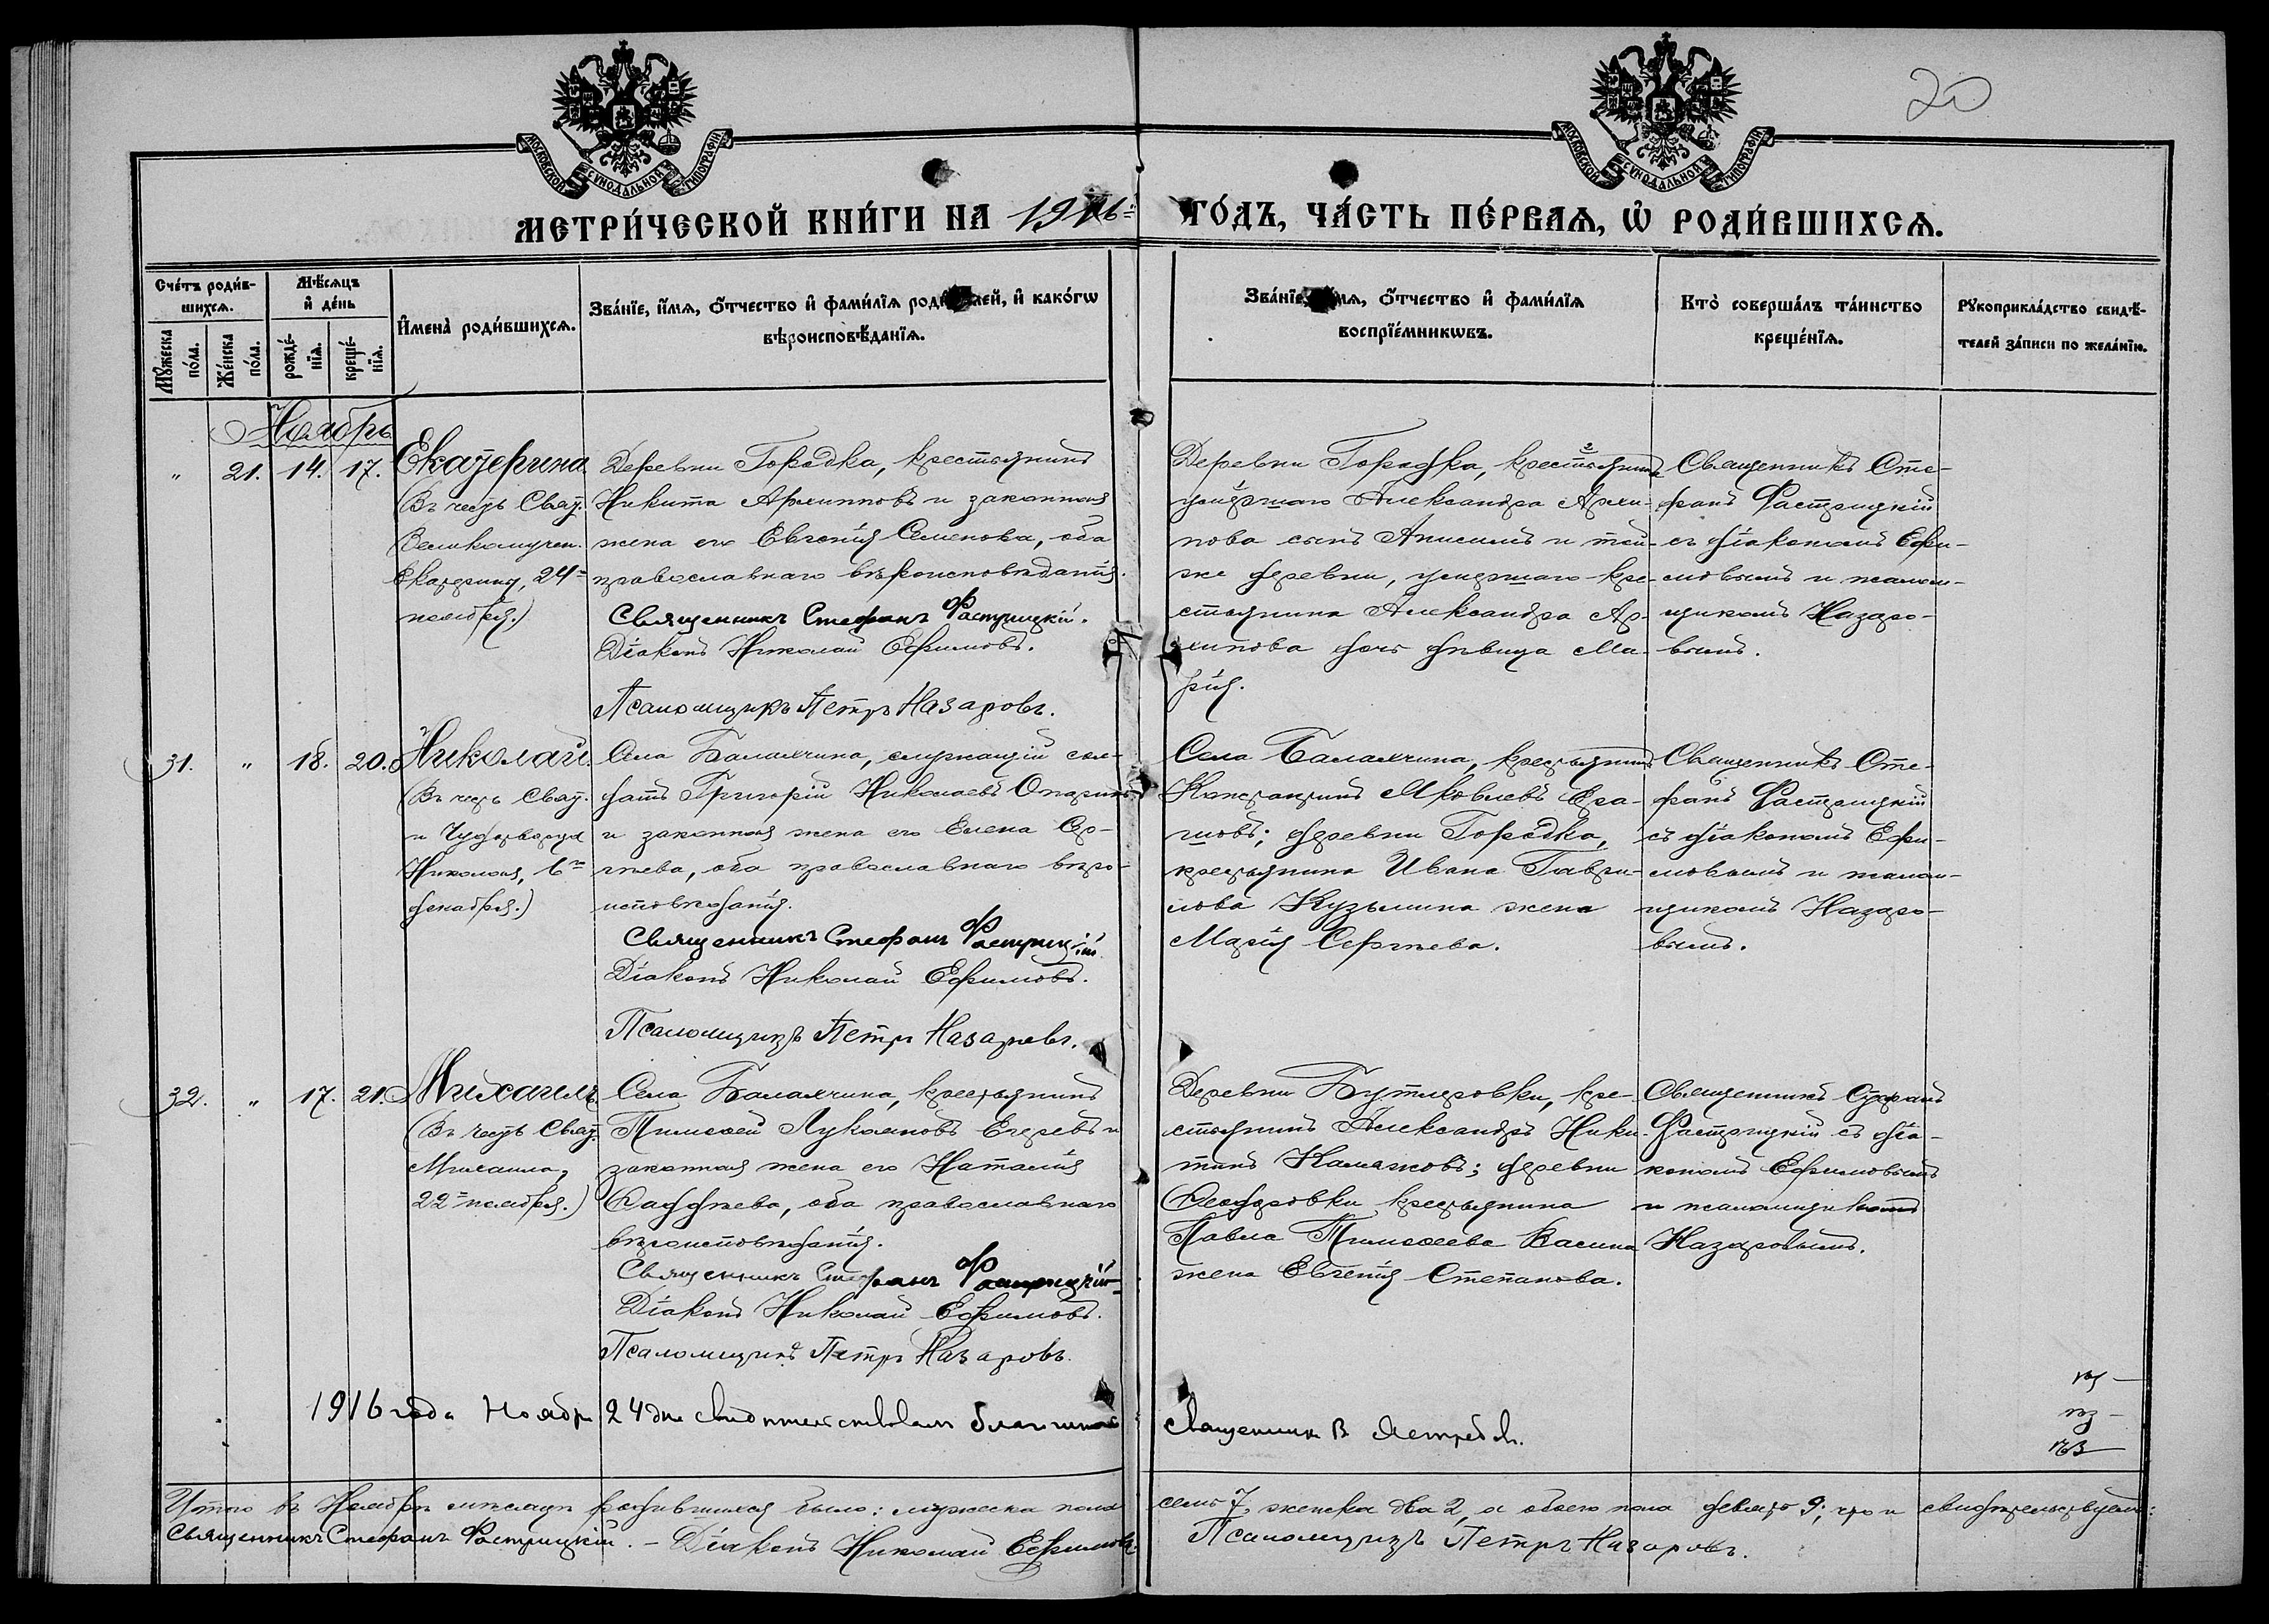 20
МОСКОВСКОЙ СѴНОДАЛЬНОЙ ТИПОГРАФІИ
МОСКОВСКОЙ СѴНОДАЛЬНОЙ ТИПОГРАФІИ
МЕТРИ́ЧЕСКОЙ КНИ́ГИ НА 1916 го́дъ, ЧА́СТЬ ПЕ́РВАѦ, Ѡ҆ РОДИ́ВШИХСѦ.
Сче́тъ роди́в-
шихсѧ.
Мꙋ́жеска по́ла.
Же́нска по́ла.
Мѣ́сѧцъ
и҆ де́нь
рожде́-
нїѧ.
креще́-
нїѧ.
И҆мена̀ роди́вшихсѧ.
Зва́нїе, и҆́мѧ, ѻ҆́тчество и҆ фами́лїѧ роди́телей, и҆ како́гѡ
вѣроисповѣ́данїѧ.
Зва́нїе, и҆́мѧ, ѻ҆́тчество и҆ фами́лїѧ
воспрїе́мникѡвъ.
Кто̀ соверша́лъ та́инство
креще́нїѧ.
Рꙋкоприкла́дство свидѣ́-
телей за́писи по жела́нїю.
Ноябрь
„ 21. 14. 17.
Екатерина
(Въ честь Свят.
Великомучен.
Екатерины, 24=
ноября.)
Деревни Городка, крестьянинъ
Никита Архипповъ и законная
жена его Евгенія Семенова, оба
православнаго вѣроисповѣданія.
Священникъ Стефанъ Фастрицкій.
Діаконъ Николай Ефимовъ.
Псаломщикъ Петръ Назаровъ.
Деревни Городка, крестьянина
умершаго Александра Архи-
пова сынъ Анисимъ и той-
же деревни, умершаго кре-
стьянина Александра Ар-
хипова дочь дѣвица Ма-
рія.
Священникъ Сте-
фанъ Фастрицкій
съ діакономъ Ефи-
мовымъ и псалом-
щикомъ Назаро-
вымъ.
31. „ 18. 20.
Николай
(Въ честь Свят.
и Чудотворца
Николая, 6=
декабря.)
Села Балахчина, служащій сол-
датъ Григорій Николаевъ Опаринъ
и законная жена его Елена Сер-
гѣева, оба православнаго вѣро-
исповѣданія.
Священникъ Стефанъ Фастрицкій
Діаконъ Николай Ефимовъ.
Псаломщикъ Петръ Назаровъ.
Села Балахчина, крестьянинъ
Константинъ Яковлевъ Ера-
шовъ; деревни Городка,
крестьянина Ивана Гаври-
лова Кузьмина жена
Марія Сергѣева.
Священникъ Сте-
фанъ Фастрицкій
съ діакономъ Ефи-
мовымъ и псалом-
щикомъ Назаро-
вымъ.
32. „ 17. 21.
Михаилъ
(Въ честь Свят.
Михаила,
22= ноября.)
Села Балахчина, крестьянинъ
Тимоѳей Лукояновъ Егеревъ и
законная жена его Наталія
Ѳаддѣева, оба православнаго
вѣроисповѣданія.
Священникъ Стефанъ Фастрицкій
Діаконъ Николай Ефимовъ.
Псаломщикъ Петръ Назаровъ.
Деревни Бутлеровки, кре-
стьянинъ Александръ Ники-
тинъ деревни
Ѳеодоровки крестьянина
Павла Тимоѳеева Васина
жена Евгенія Степанова.
Священникъ Стефанъ
Фастрицкій съ діа-
кономъ Ефимовымъ
и псаломщикомъ
Назаровымъ.
1916 года Ноября 24 дня свидѣтельствовалъ благочинный
священникъ В Ястребовъ.
Итого въ Ноябрѣ мѣсяцѣ родившихся было: мужеска пола семь 7, женска два 2, а обоего пола девять 9; что и свидѣтельствуемъ:
Священникъ Стефанъ Фастрицкій. – Діаконъ Николай Ефимовъ. Псаломщикъ Петръ Назаровъ.